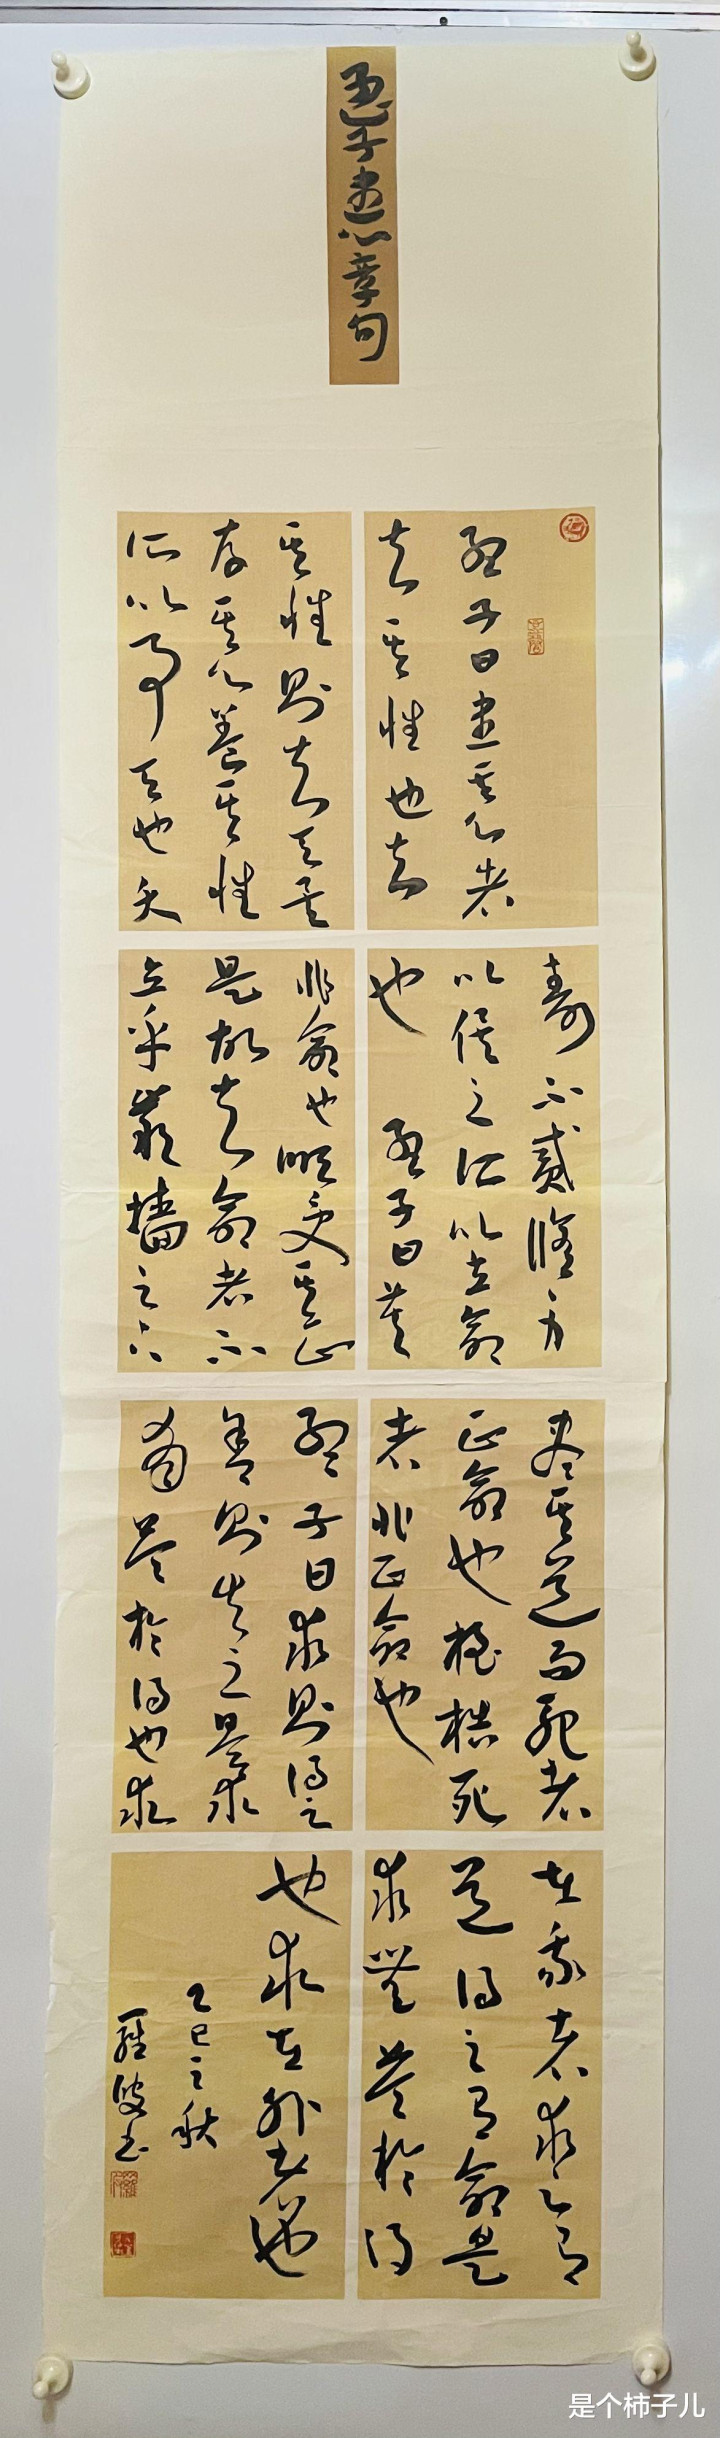 孟子盡心章句
孟子曰盡其心者
知其性也知
其性則知天矣
存其心養其性
所以事天也夭
壽不貳脩身
以俟之所以立命
也 孟子曰莫
非命也順受其正
是故知命者不
立乎巖墻之下
盡其道而死者
正命也桎梏死
者非正命也
孟子曰求則得之
舍則失之是求
有益於得也求
在我者求之有
道得之有命是
求無益於得
也求在外者也
乙巳之秋
羅 书
是个柿子儿